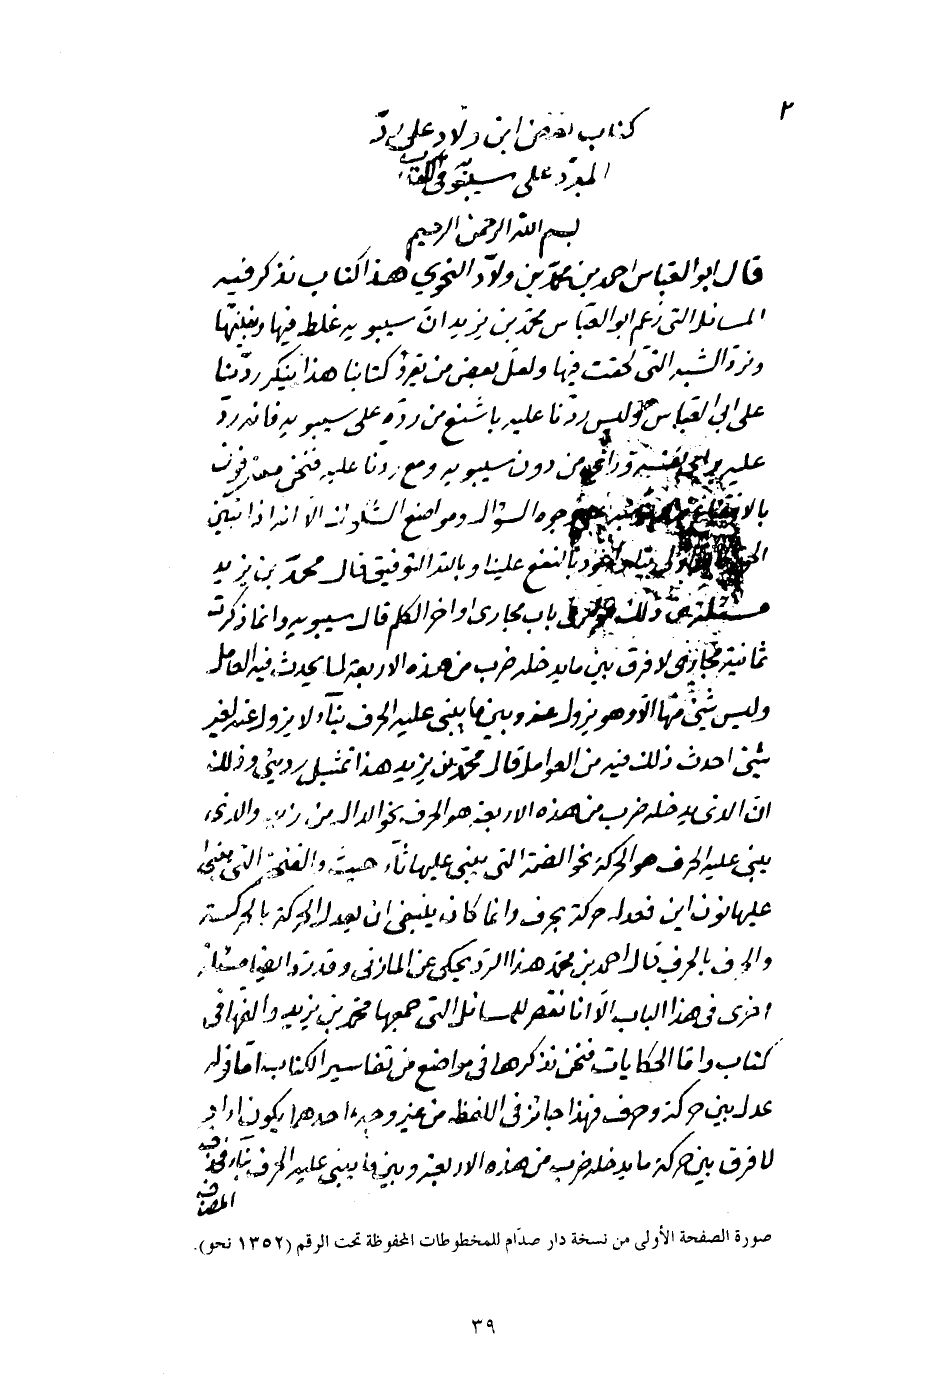 ٢
كتاب نقض ابن ولاد على ردّ
المبرّد على سيبويه في الكتاب
بسم الله الرحمن الرحيم
قال ابو العباس احمد بن محمد بن ولاد النحوي هذا كتاب نذكر فيه
المسائل التي زعم ابو العباس محمد بن يزيد ان سيبويه غلط فيها ونبينها
ونرد الشبه التي لحقت فيها ولعل بعض من يقرأ كتابنا هذا ينكر ردّنا
على ابي العباس وليس ردّنا عليه باشنع من ردّه على سيبويه فانه ردّ
عليه برأي نفسه ورأي من دون سيبويه ومع ردنا عليه فنحن معترفون
بالانتفاع به وجوه السؤال ومواضع الشكوك الا انه اذا تبين
الحق بالنفع علينا وبالله التوفيق قال محمد بن يزيد
مسئلة من ذلك باب مجاري اواخر الكلم قال سيبويه وانما ذكرت
ثمانية مجاري لا فرق بين ما يدخله ضرب من هذه الاربعة لما يحدث فيه العامل
وليس شيئ منها الا وهو يزول عنه وبين ما يبنى عليه الحرف بناء لا يزول عنه لغير
شيئ احدث ذلك فيه من العوامل قال محمد بن يزيد هذا تمثيل رديئ وذلك
ان الذي يدخله ضرب من هذه الاربعة هو الحرف نحو الدال من زيد والذي
يبنى عليه الحرف هو الحركة نحو الضمة التي يبنى عليها ثاء حيث والفتحة التي يبنى
عليها نون اين فعدل حركة بحرف وانما كان ينبغي ان يعدل الحركة بالحركة
والحرف بالحرف قال احمد بن محمد هذا الرد يحكى عن المازني وقد رد ايضا مسئلة
اخرى في هذا الباب الا انا نقصر للمسائل التي جمعها محمد بن يزيد والفها في
كتاب واما الحكايات فنحن نذكرها في مواضع من تفاسير الكتاب اما قوله
عدل بين حركة وحرف فهذا جائز في اللفظ من غير وجه احدهما يكون اراد
لا فرق بين حركة ما يدخله ضرب من هذه الاربعة وبين ما يبنى عليه الحرف بناء فحذف
المضاف
صورة الصفحة الأولى من نسخة دار صدّام للمخطوطات المحفوظة تحت الرقم (١٣٥٢ نحو).
٣٩